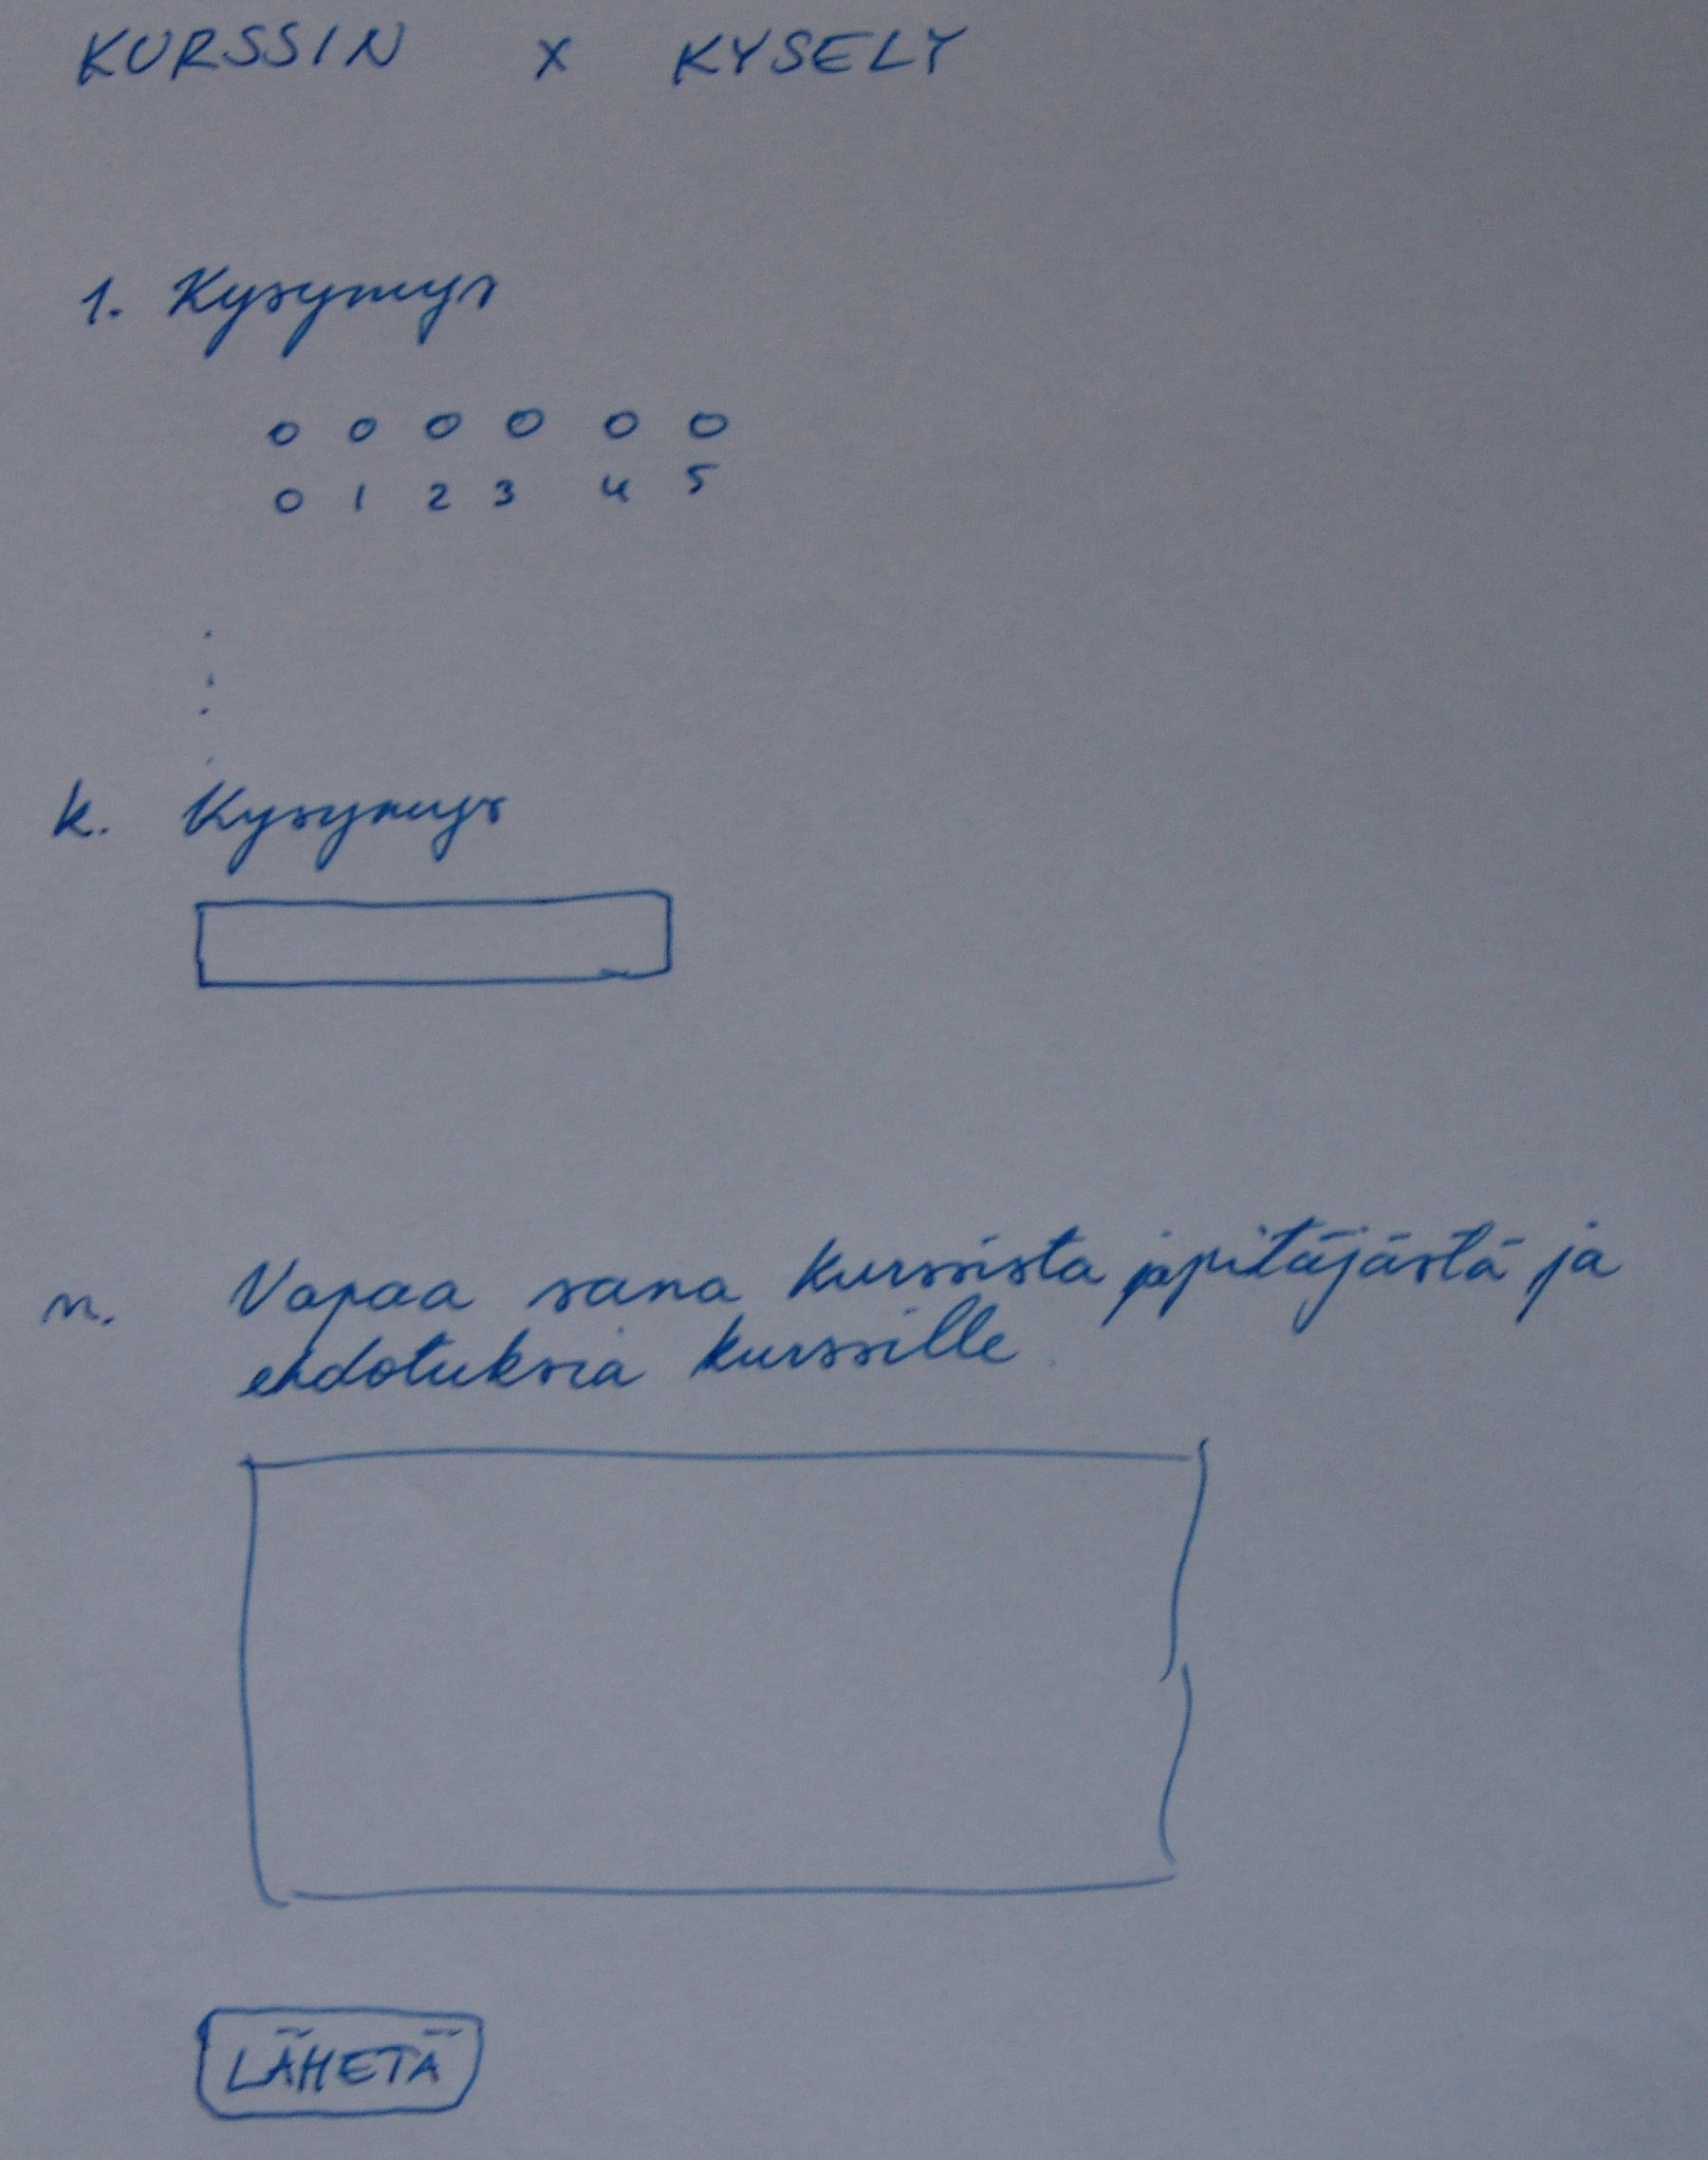 KURSSIN X KYSELY
1. Kysymys
0 1 2 3 4 5
k. Kysymys
n. Vapaa sana kurssista, pitäjästä ja
ehdotuksia kurssille
LÄHETÄ